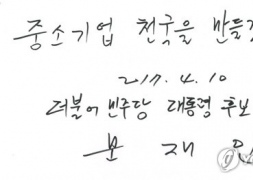 중소기업 천국을 만들
2017. 4. 10
더불어민주당 대통령 후보
문 재 인